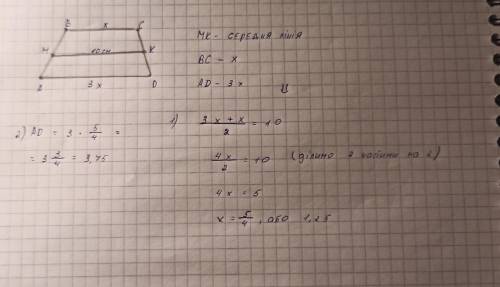 B x C
M 10 см K
A 3x D
MK - СЕРЕДНЯ ЛІНІЯ
BC - x
AD - 3x
1) 3x + x / 2 = 10
4x / 2 = 10 (ділимо 2 частини на 2)
4x = 5
x = 5/4, або 1,25
2) AD = 3 · 5/4 =
= 3 3/4 = 3,75